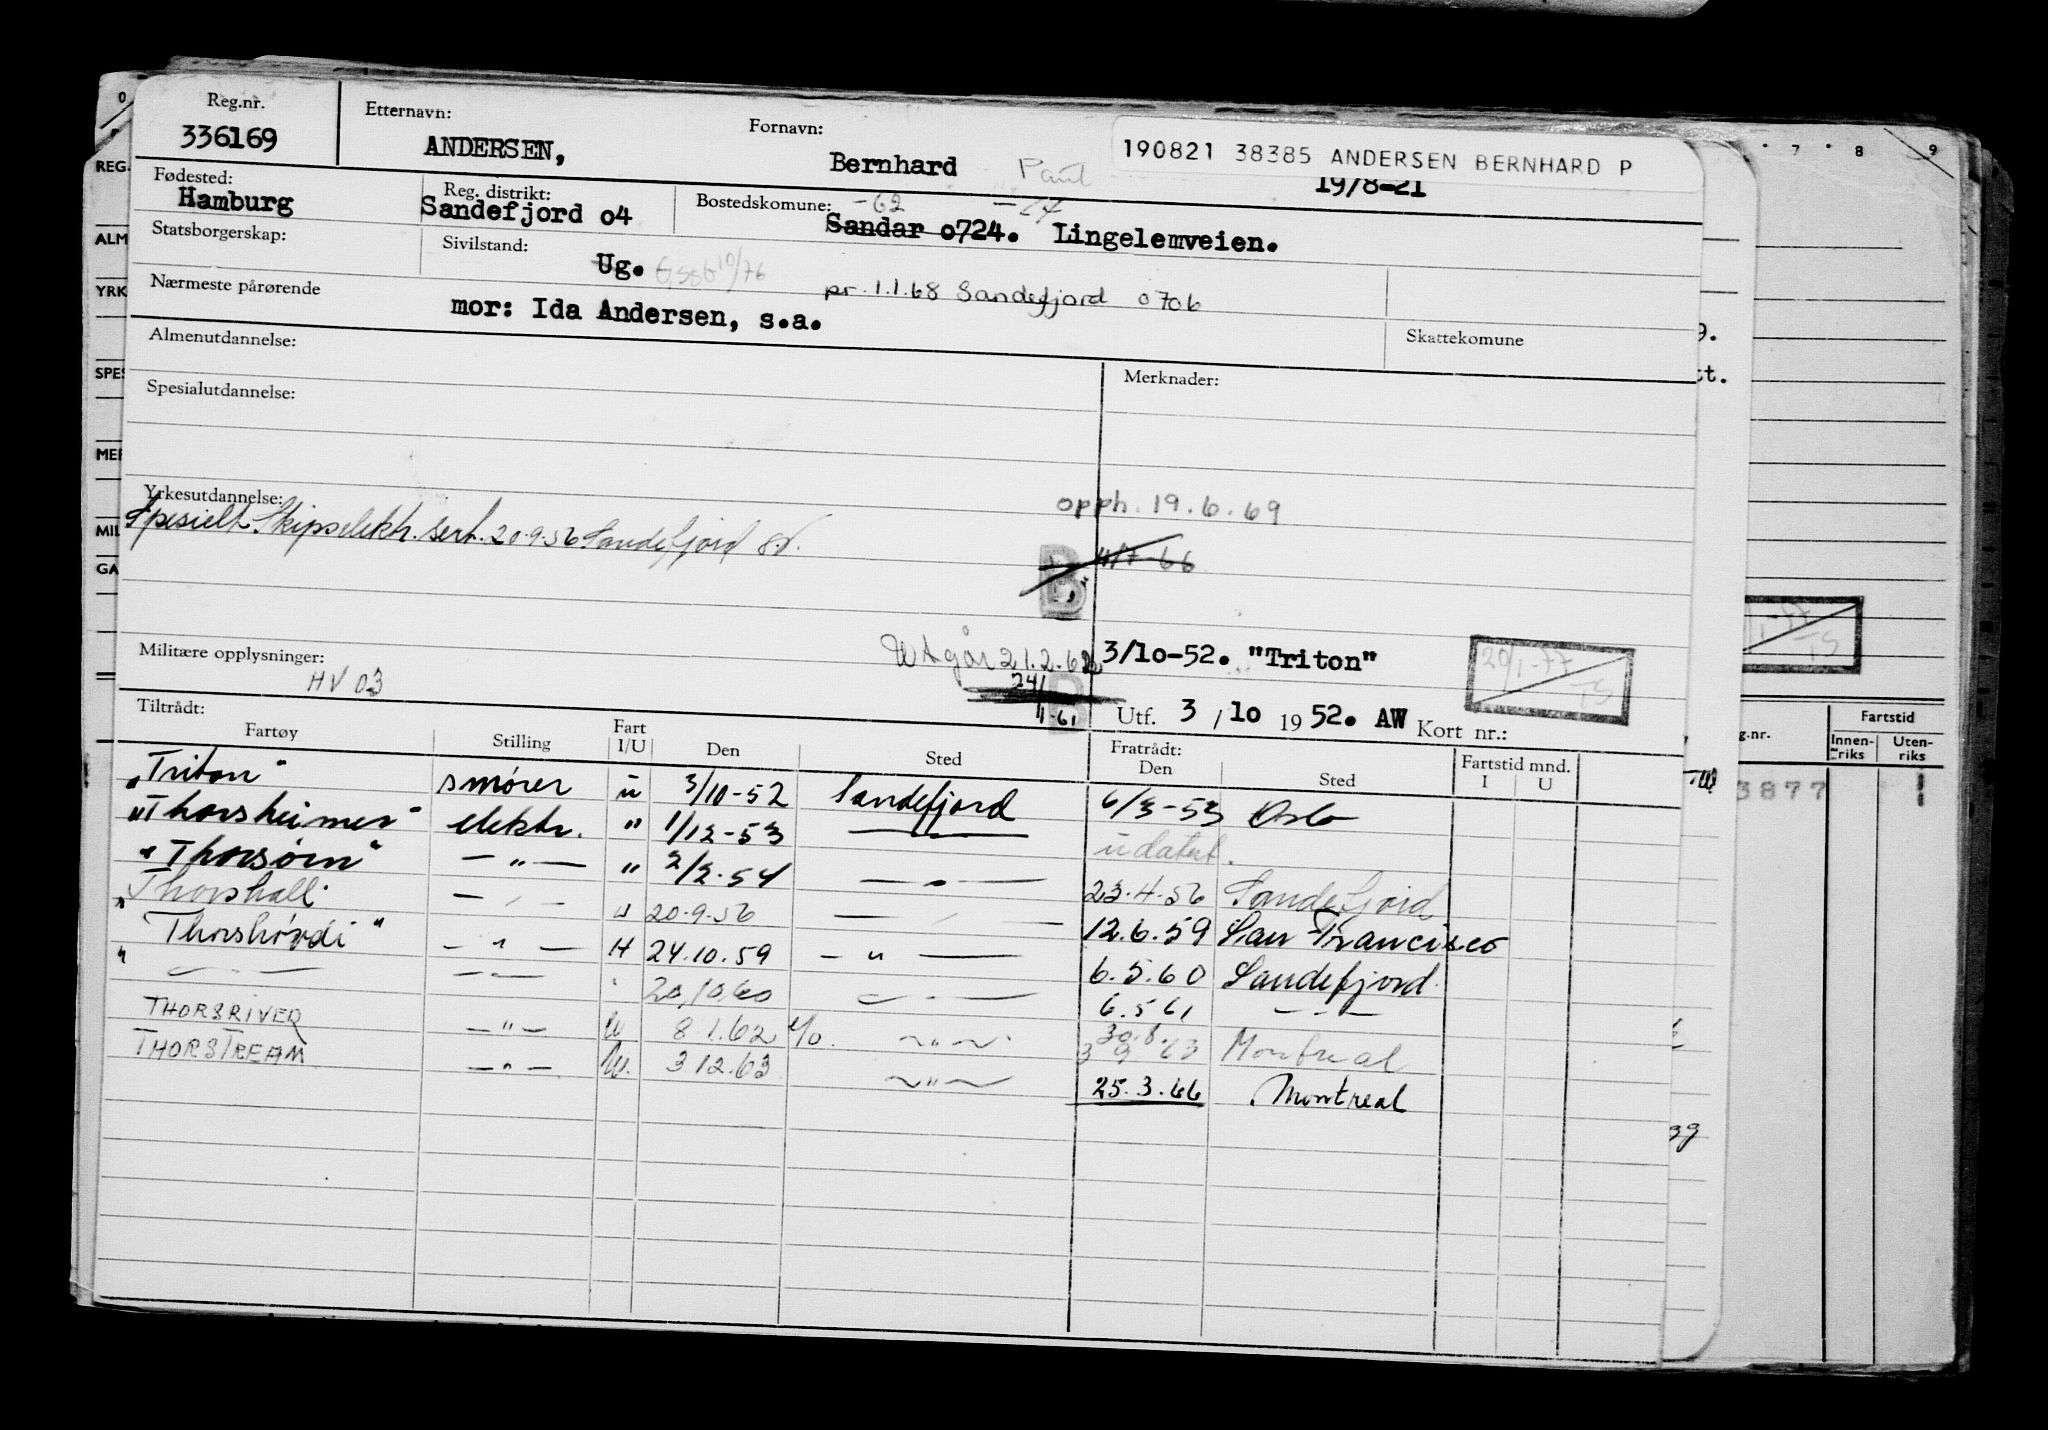 Reg.nr. Etternavn: Fornavn:
336169 ANDERSEN, Bernhard Paul 190821 38385 ANDERSEN BERNHARD P
19/8-21
Fødested: Reg. distrikt: Bostedskomune: -62
Hamburg Sandefjord 04 Sandar 0724. Lingelemveien.
Statsborgerskap: Sivilstand:
Ug. 10/76
pr. 1.1.68 Sandefjord 0706
Nærmeste pårørende
mor: Ida Andersen, s.a.
Skattekomune
Almenutdannelse:
Merknader:
Spesialutdannelse:
Yrkesutdannelse:
Spesielt Skipselektr. sert. 20.9.56 Sandefjord
opph. 19.6.69
B 11/7-66
Militære opplysninger:
HV 03
Utgår 21.2.62
24/
11-61
B
3/10-52. "Triton"
20/1-77
TS
Utf. 3 / 10 1952. AW Kort nr.:
Tiltrådt: Fratrådt:
Fartøy Stilling Fart I/U Den Sted Den Sted Fartstid mnd. I U
"Triton" smører u 3/10-52 Sandefjord 6/3-53 Oslo
"Thorsheimer" elektr. " 1/12-53 — udatert.
"Thorsørn" — " — " 2/2-54 — " — 23.4.56 Sandefjord
"Thorshall. — " — u 20.9.56 — " — 12.6.59 San Francisco
"Thorshövdi" — " — H 24.10.59 — " — 6.5.60 Sandefjord
" — " — — " — " 20.10.60 — " — 6.5.61 — " —
THORSRIVER — " — U 8 1.62 — " — 30.8. 3 9 63 Montreal
THORSTREAM — " — U. 3 12.63 — " — 25.3.66 Montreal
0 7 8 9
REG.
ALM
YRK
SPES
MER
MIL
GA
9.
tt.
g.nr. Fartstid
Innenriks Utenriks
3877 1